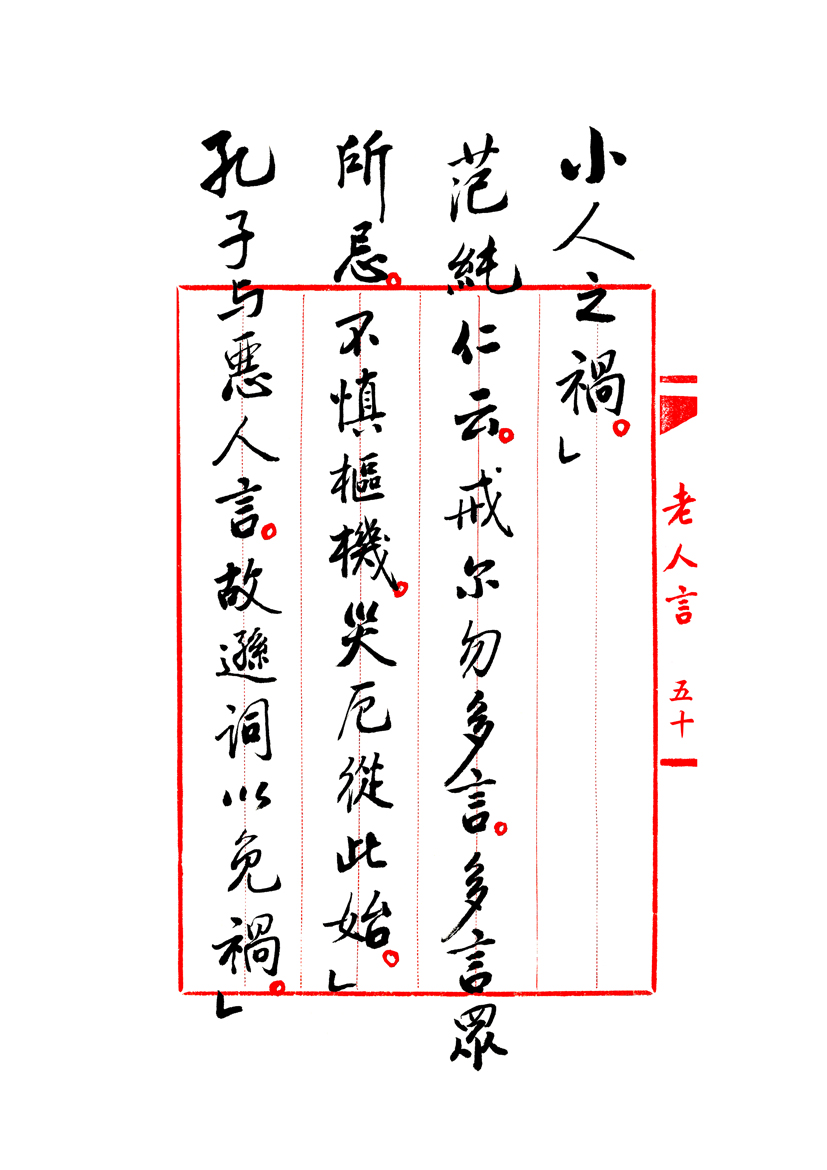 小人之禍。」
范純仁云。戒尔勿多言。多言眾
所忌。不慎樞機。災厄從此始。」
孔子与惡人言。故遜词以免禍。」
老人言 五十